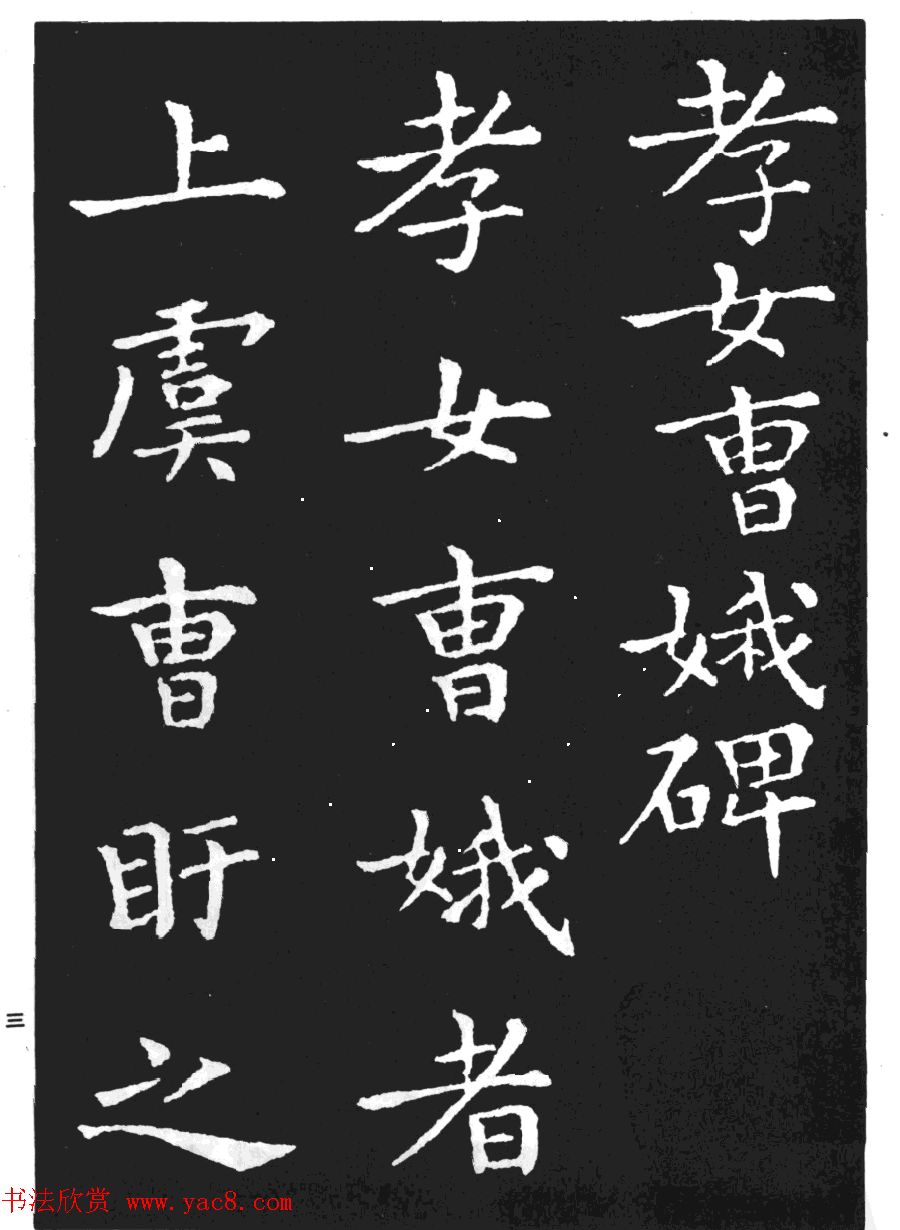 孝女曹娥碑
孝女曹娥者
上虞曹盱之
三
书法欣赏 www.yac8.com